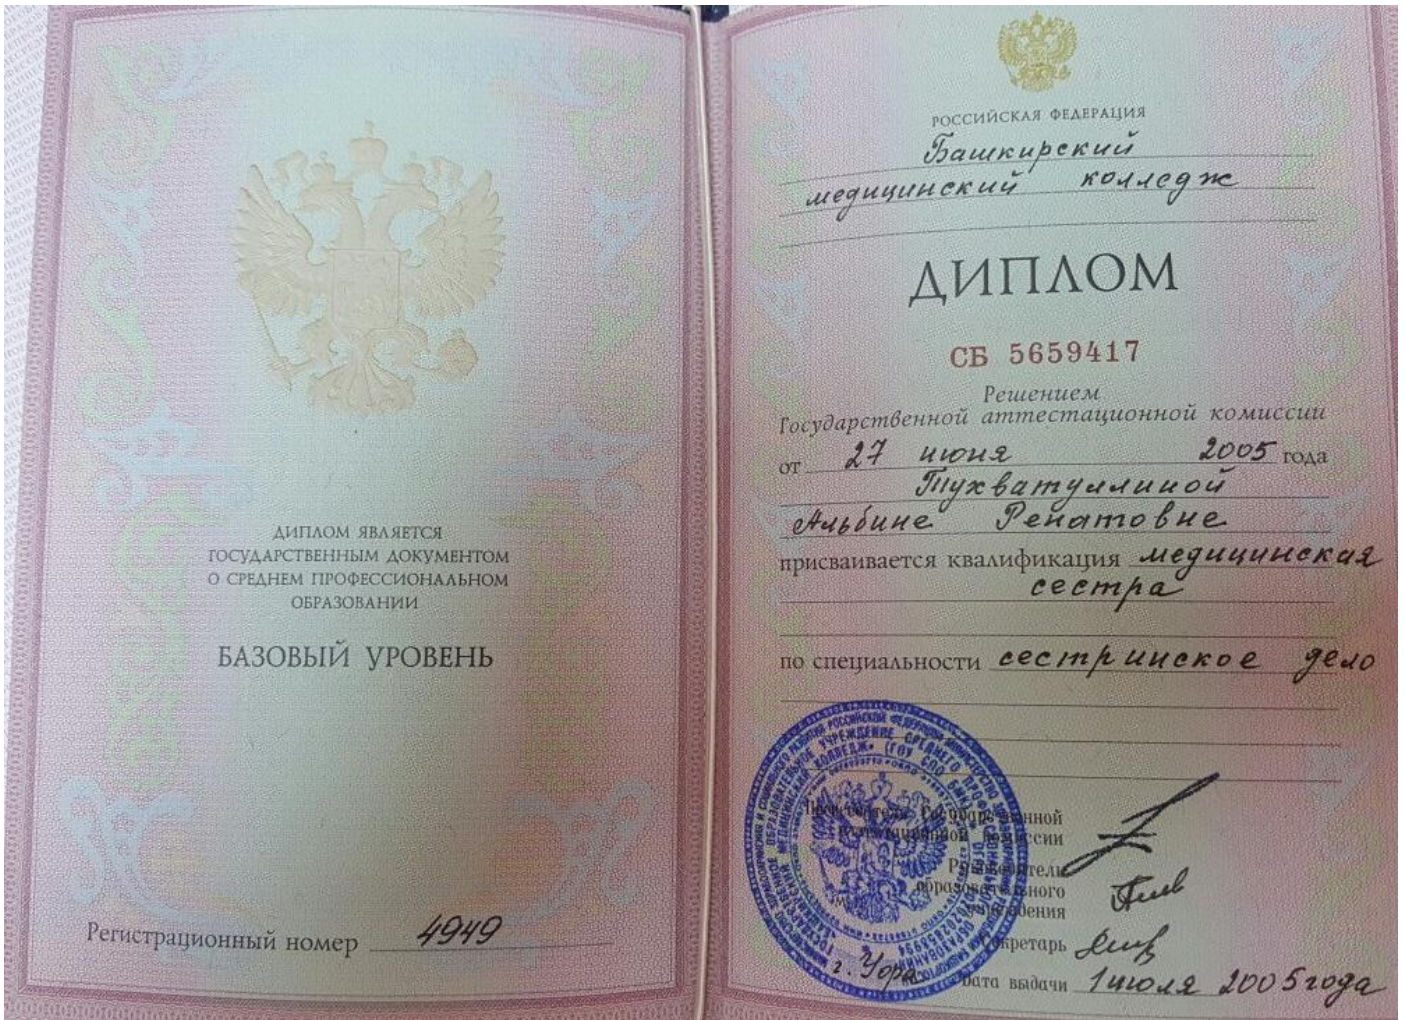 ДИПЛОМ ЯВЛЯЕТСЯ
ГОСУДАРСТВЕННЫМ ДОКУМЕНТОМ
О СРЕДНЕМ ПРОФЕССИОНАЛЬНОМ
ОБРАЗОВАНИИ
БАЗОВЫЙ УРОВЕНЬ
Регистрационный номер 4949
РОССИЙСКАЯ ФЕДЕРАЦИЯ
Башкирский
медицинский колледж
ДИПЛОМ
СБ 5659417
Решением
Государственной аттестационной комиссии
от 27 июня 2005 года
Тухватуллиной
Альбине Ренатовне
присваивается квалификация медицинская
сестра
по специальности сестринское дело
Председатель Государственной
аттестационной комиссии
Руководитель
образовательного
учреждения
Секретарь
г. Уфа
Дата выдачи 1 июля 2005 года